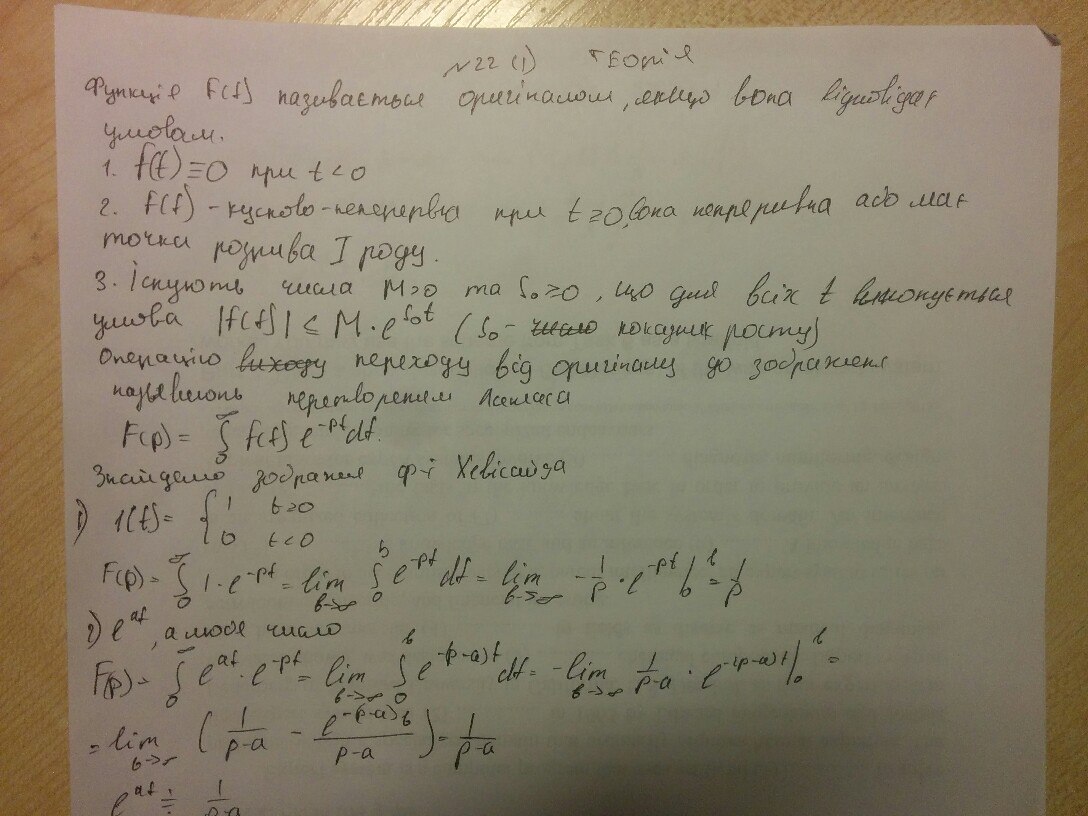 №22 (1) Теорія
Функція f(t) називається оригіналом, якщо вона відповідає
умовам.
1. f(t)≡0 при t<0
2. f(t) - кусково-неперервна при t≥0, вона непреривна або має
точки розрива I роду.
3. Існують числа M>0 та S₀≥0, що для всіх t виконується
умова |f(t)| ≤ M·e^{S₀t} (S₀ - число показник росту)
Операцію виходу переходу від оригіналу до зображення
називають перетворенням Лапласа
F(p) = ∫₀^∞ f(t) e^{-pt}dt.
Знайдемо зображення ф-ї Хевісайда
1) 1(t) = { 1 t>0
0 t<0
F(p) = ∫₀^∞ 1·e^{-pt} = lim_{b→∞} ∫₀^b e^{-pt}dt = lim_{b→∞} -1/p · e^{-pt} |₀^b = 1/p
2) e^{at}, a любе число
F(p) = ∫₀^∞ e^{at}·e^{-pt} = lim_{b→∞} ∫₀^b e^{-(p-a)t}dt = -lim_{b→∞} 1/(p-a) · e^{-(p-a)t} |₀^b =
= lim_{b→∞} ( 1/(p-a) - e^{-(p-a)b}/(p-a) ) = 1/(p-a)
e^{at} ≑ 1/(p-a)